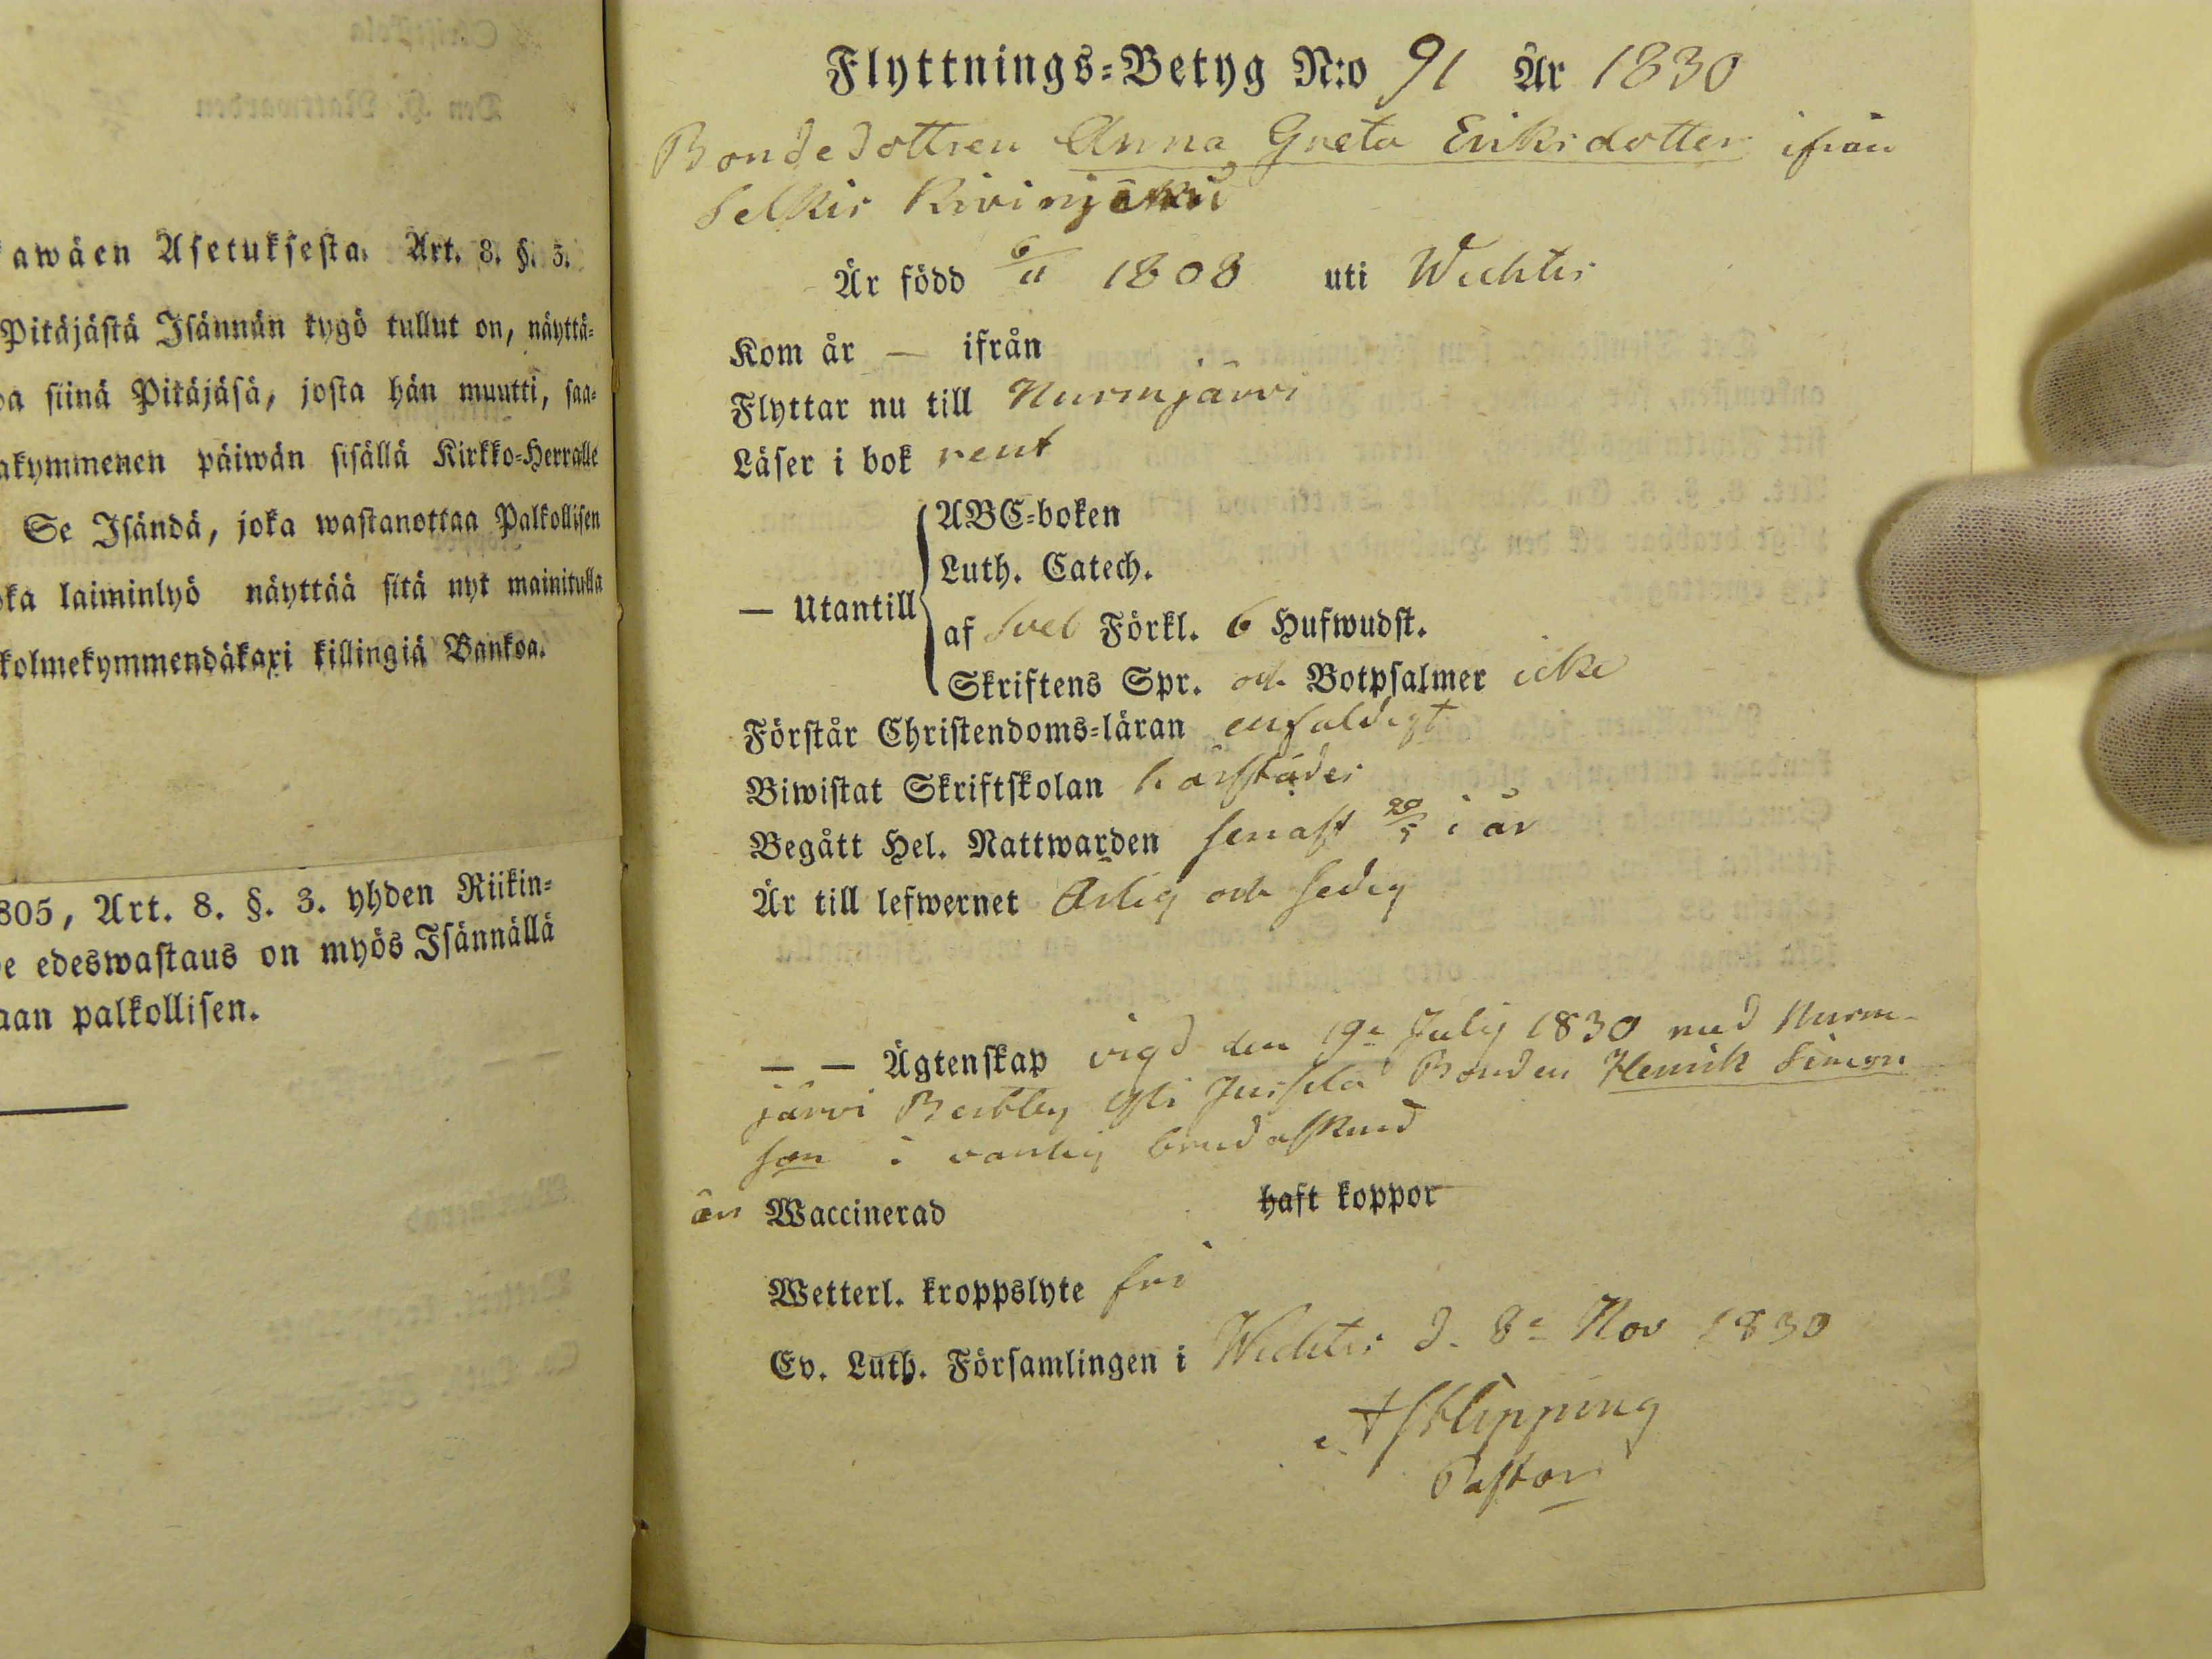 awäen Asetuksesta. Art. 8. §. 3.
Pitäjästä Isännän tygö tullut on, näyttä-
siinä Pitäjäsä, josta hän muutti, saa-
kymmenen päiwän sisällä Kirkko-Herralle
Se Isändä, joka wastanottaa Palkollisen
ka laiminlyö näyttää sitä nyt mainitulla
kolmekymmendäkaxi killingiä Bankoa.
805, Art. 8. §. 3. yhden Riikin-
e edeswastaus on myös Isännällä
aan palkollisen.
Flyttnings-Betyg N:o 91 År 1830
Bondedottren Anna Greta Eriksdotter ifrån
Selkis
Är född 6/11 1808 uti Wichtis
Kom år — ifrån
Flyttar nu till Nurmjärvi
Läser i bok rent
— Utantill
ABC-boken
Luth. Catech.
af Sveb Förkl. 6 Hufwudst.
Skriftens Spr. och Botpsalmer icke
Förstår Christendoms-läran enfaldigt
Biwistat Skriftskolan härstädes
Begått Hel. Nattwarden senast 20/5 i år
Är till lefwernet Ärlig och sedig
— — Ägtenskap vigd den 19e Julij 1830 med Nurm-
järvi Bonden Henrik Simon
son i vanlig
än Waccinerad haft koppor
Wetterl. kroppslyte fri
Ev. Luth. Församlingen i Wichtis d. 8e Nov 1830
Pastor